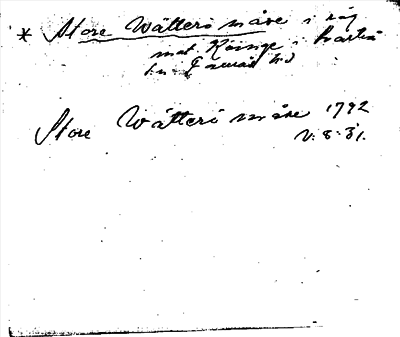 * Store Wätteri måse i råg
mot Köinge i Svartrå
sn Faurås hd
Store Wätteri måse 1792
V. 8. 31.